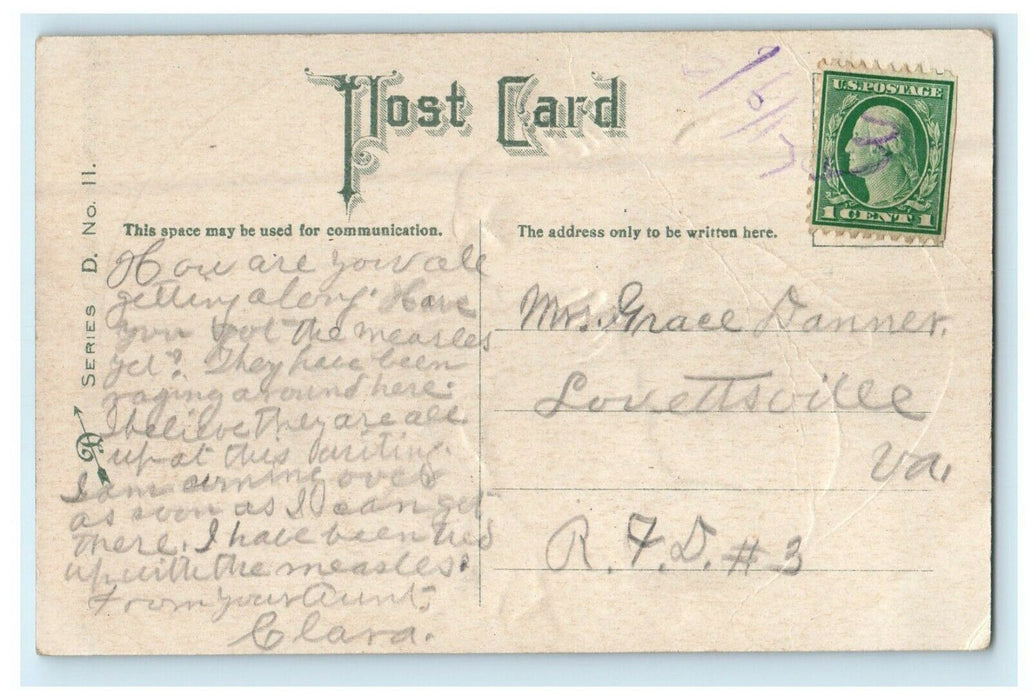 Post Card
SERIES D. No. 11.
This space may be used for communication.
How are you all
getting along. Have
you got the measles
yet? They have been
raging around here.
I believe they are all
up at this writing.
I am coming over
as soon as I can get
there. I have been tied
up with the measles.
From your Aunt.
Clara.
The address only to be written here.
Mrs. Grace Danner.
Lovettsville
Va.
R. F. D. # 3
U.S. POSTAGE
1 CENT 1